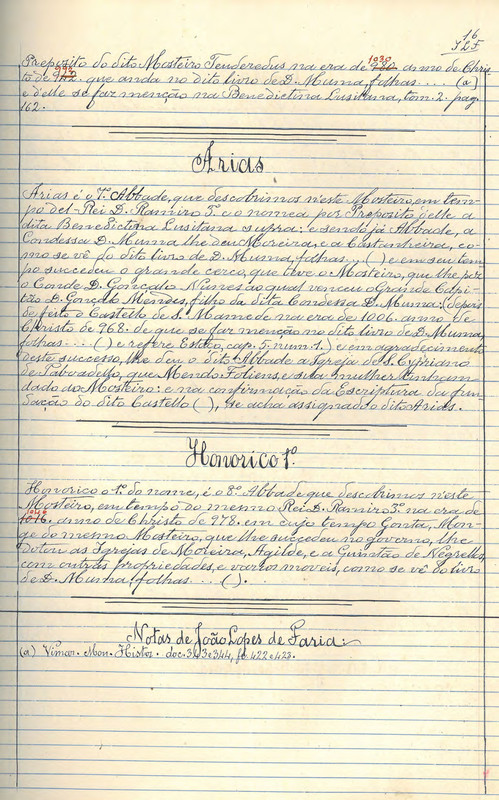 16
JLF
Preposito do dito Mosteiro Tenderedus na era de 1030 anno de Chris
to de 992. que anda no dito livro de D. Muma, folhas.... (a)
e d'elle se faz menção na Benedictina Lusitana, tom. 2. pag.
162.
Arias
Arias é o 7º Abbade, que descobrimos n'este Mosteiro, em tem-
po del-Rei D. Ramiro 3º. e o nomea por Preposito d'elle a
dita Benedictina Lusitana supra: e sendo já Abbade, a
Condessa D. Muma lhe deu Moreira, e a Castanheira, co-
mo se vê do dito livro de D. Muma, folhas... ( ) e em seu tem
po succedeu o grande cerco, que teve o Mosteiro, que lhe pez
o Conde D. Gonçalo Nunes ao qual venceu o Grande Capi-
tão D. Gonçalo Mendes, filho da dita Condessa D. Muma: (depois
de feito o Castello de S. Mamede na era de 1006. anno de
Christo de 968. de que se faz menção no dito livro de D. Muma,
folhas.... ( ) e refere Estaço, cap. 5. num. 1.) e em agradecimento
deste successo, lhe deu o dito Abbade a Igreja de S. Cypriano
de Taboadello, que Mendo Feliens, e sua mulher tinham
dado ao Mosteiro: e na confirmação da Escriptura da fun
dação do dito Castello ( ), se acha assignado o dito Arias.
Honorico 1º.
Honorico o 1º. do nome, é o 8º. Abbade que descobrimos n'este
Mosteiro, em tempo do mesmo Rei D. Ramiro 3º. na era de
1016. anno de Christo de 978. em cujo tempo Gonta, Mon-
ge do mesmo Mosteiro, que lhe succedeu no governo, lhe
dotou as Igrejas de Moreira, Agilde, e a Quintão de Negrellos,
com outras propriedades, e varios moveis, como se vê do livro
de D. Muma, folhas.... ( ).
Notas de João Lopes de Faria:
(a) Vimar. Mon. Histor. doc. 343 e 344, fl. 422 e 423.